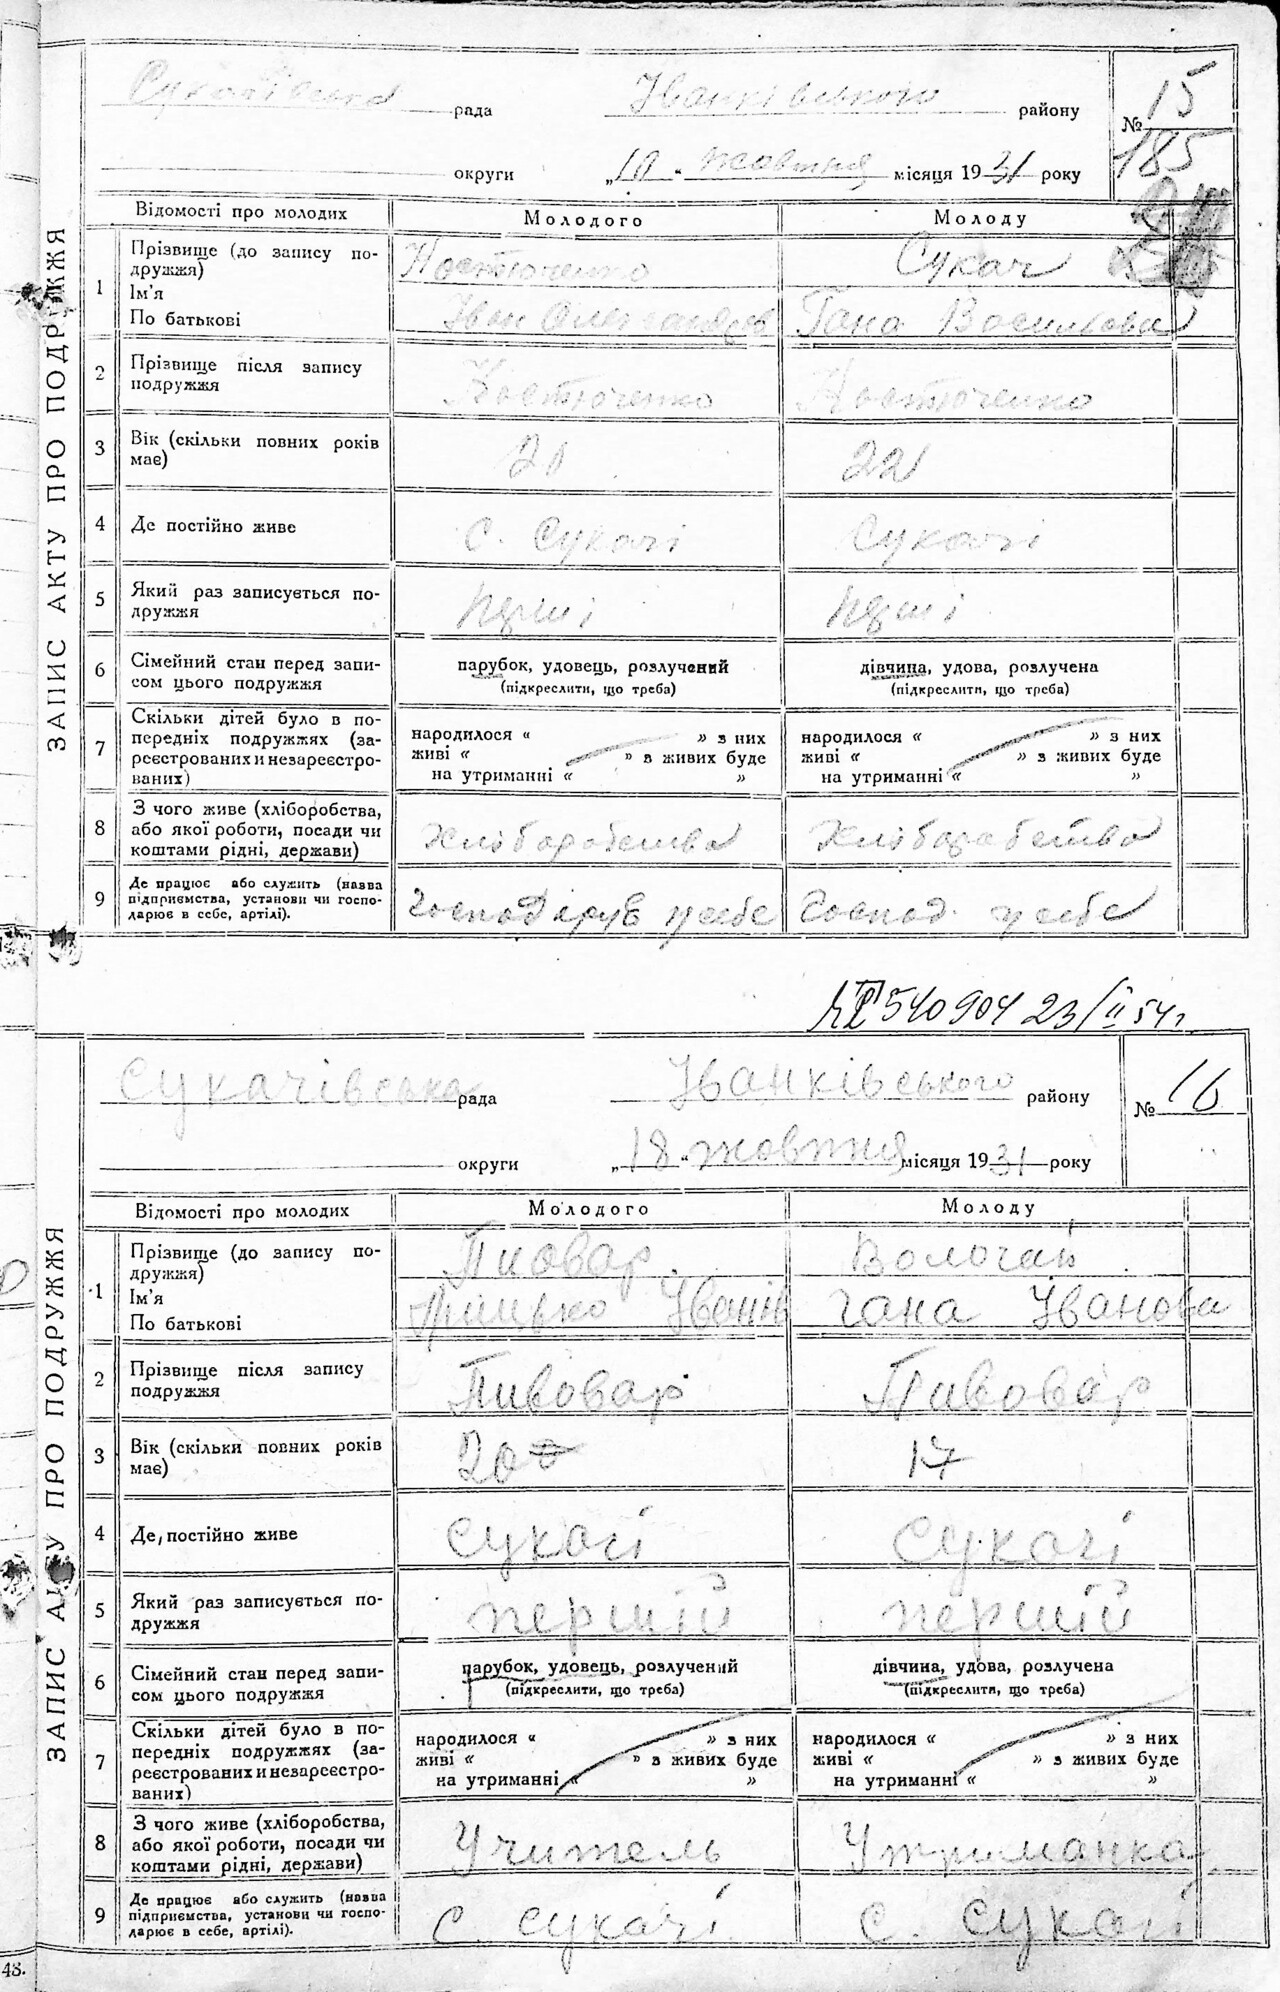 ЗАПИС АКТУ ПРО ПОДРУЖЖЯ
рада Іванківського району № 15
185
округи „10“ жовтня місяця 1931 року
Відомості про молодих Молодого Молоду
1 Прізвище (до запису подружжя) Костюченко Сукач
Ім'я
По батькові Іван Олександрів Гана Василкова
2 Прізвище після запису подружжя Костюченко Костюченко
3 Вік (скільки повних років має) 20 22
4 Де постійно живе с. Сукачі Сукачі
5 Який раз записується подружжя
6 Сімейний стан перед записом цього подружжя парубок, удовець, розлучений дівчина, удова, розлучена
(підкреслити, що треба) (підкреслити, що треба)
7 Скільки дітей було в попередніх подружжях (зареєстрованих и незареєстрованих)
народилося « » з них народилося « » з них
живі « » в живих буде живі « » з живих буде
на утриманні « » на утриманні « »
8 З чого живе (хліборобства, або якої роботи, посади чи коштами рідні, держави) хліборобства хліборобства
9 Де працює або служить (назва підприємства, установи чи господарює в себе, артілі). у себе Господ. у себе
540904 23/II 54г.
ЗАПИС АКТУ ПРО ПОДРУЖЖЯ
Сукачівська рада Іванківського району № 16
округи „18“ жовтня місяця 1931 року
Відомості про молодих Молодого Молоду
1 Прізвище (до запису подружжя) Пивовар Вологай
Ім'я
По батькові Грицько Іванів гана Іванова
2 Прізвище після запису подружжя Пивовар Пивовар
3 Вік (скільки повних років має) 20 17
4 Де постійно живе Сукачі Сукачі
5 Який раз записується подружжя першій першій
6 Сімейний стан перед записом цього подружжя парубок, удовець, розлучений дівчина, удова, розлучена
(підкреслити, що треба) (підкреслити, що треба)
7 Скільки дітей було в попередніх подружжях (зареєстрованих и незареєстрованих)
народилося « » з них народилося « » з них
живі « » з живих буде живі « » з живих буде
на утриманні « » на утриманні « »
8 З чого живе (хліборобства, або якої роботи, посади чи коштами рідні, держави) Учитель Утриманка
9 Де працює або служить (назва підприємства, установи чи господарює в себе, артілі). с. сукачі с. сукачі
48.